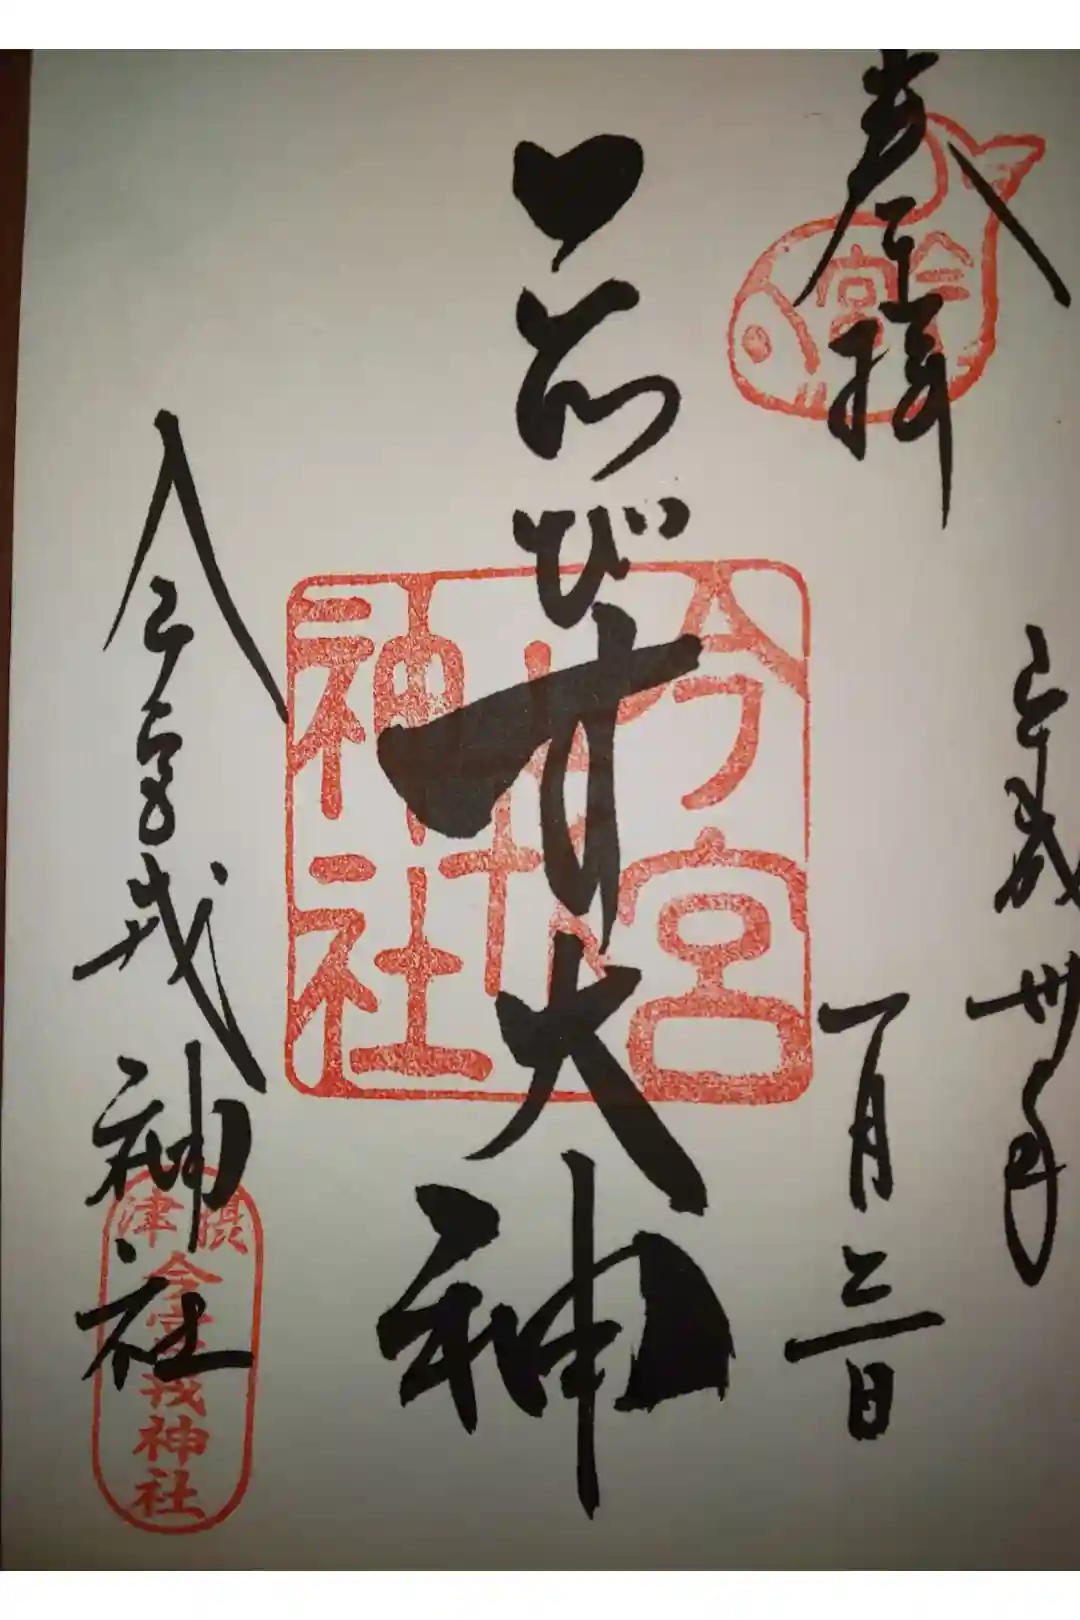 奉拝
今宮
平成卅年
一月三日
ゑびす大神
今宮
戎
神社
今宮戎神社
摂津
今宮戎神社